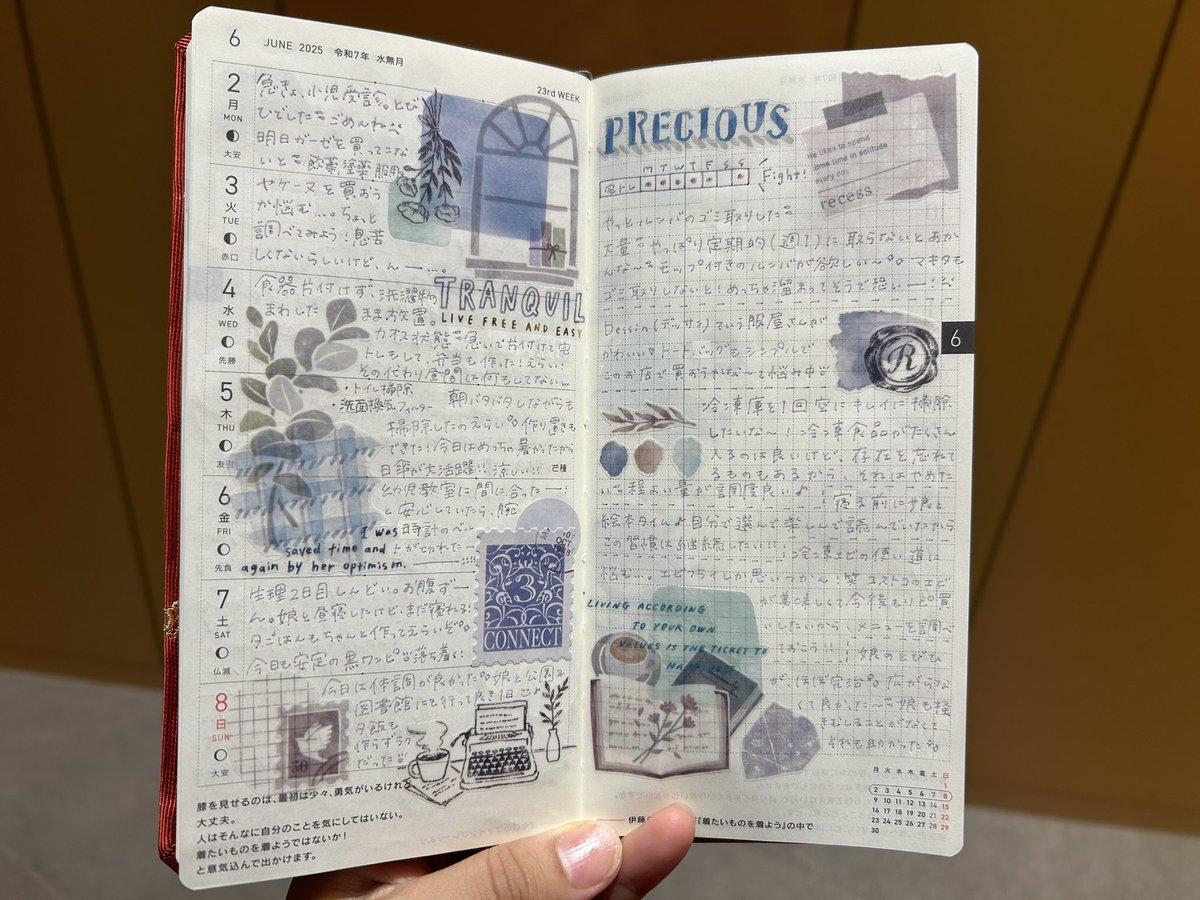 6 JUNE 2025 令和7年 水無月
23rd WEEK
2
月
MON
大安
急きょ、小児受診。とび
ひでした ごめんね
明日ガーゼを買ってこな
いと 飲薬塗薬 服用
3
火
TUE
赤口
ヤケーヌを買おう
か悩む…。ちょっと
調べてみよう!息苦
しくないらしいけど、んー…。
4
水
WED
先勝
食器片付けず、洗濯物
まわした まま放置。
カオス状態 急いでお片付けて宅
トレもして、弁当も作った!えらい!
その代わり昼間は何もしてない
5
木
THU
友引
・トイレ掃除
・洗面換気フィルター
朝バタバタしながらも
掃除したのえらい 作り置きも
できた!今日はめっちゃ暑かったから
日傘が大活躍!!涼しい!!
芒種
6
金
FRI
先負
幼児教室に間に合ったー!
と安心していたら、腕
時計のベル
トが切れたー
7
土
SAT
仏滅
生理2日目しんどい。お腹ず
ん。娘と昼寝したけど、まだ寝れる!
夕ごはんもちゃんと作ってえらいぞ
今日も安定の黒ワンピ 落ち着く
8
日
SUN
大安
今日は体調が良かった 娘と公園
図書館にも行って良き1日
夕飯も
作らずラク
だった
TRANQUIL
LIVE FREE AND EASY
I was
saved time and
again by her optimism.
3
CONNECT
50
膝を見せるのは、最初は少々、勇気がいるけれど
大丈夫。
人はそんなに自分のことを気にしてはいない。
着たいものを着ようではないか!
と意気込んで出かけます。
PRECIOUS
M T W T F S S
宅トレ
Fight!
He likes to spend
some time in solitude
every
recess
やっとルンバのゴミ取りした
大量 やっぱり定期的(週1)に取らないとあか
んな〜 モップ付きのルンバが欲しい〜 マキタも
ゴミ取りしないと!めっちゃ溜まってそうで恐いー!
Dessin(デッサン)ていう服屋さんが
かわいい トートバッグもシンプルで
このお店で買おうかな〜て悩み中
R
6
冷凍庫を1回空にキレイに掃除
したいな〜!冷凍食品がたくさん
入るのは良いけど、存在を忘れて
るものもあるから、それはやめた
い 程よい量が調度良い♪ 寝る前に娘と
絵本タイム♪自分で選んで楽しんで読んでいたから
この習慣は継続したい!!冷凍エビの使い道に
悩む…。エビフライしか思いつかん!笑 コストコのエビ
が美味しくて今後もリピ買
いしたいから、メニューを調べ
ておこう!! 娘のとびひ
が、ほぼ完治 広がらな
くて良かった〜 娘も掻
きむしることがなくて
それも助かった
LIVING ACCORDING
TO YOUR OWN
VALUES IS THE TICKET TO
月 火 水 木 金 土 日
1
2 3 4 5 6 7 8
9 10 11 12 13 14 15
16 17 18 19 20 21 22
23 24 25 26 27 28 29
30
『着たいものを着よう』の中で